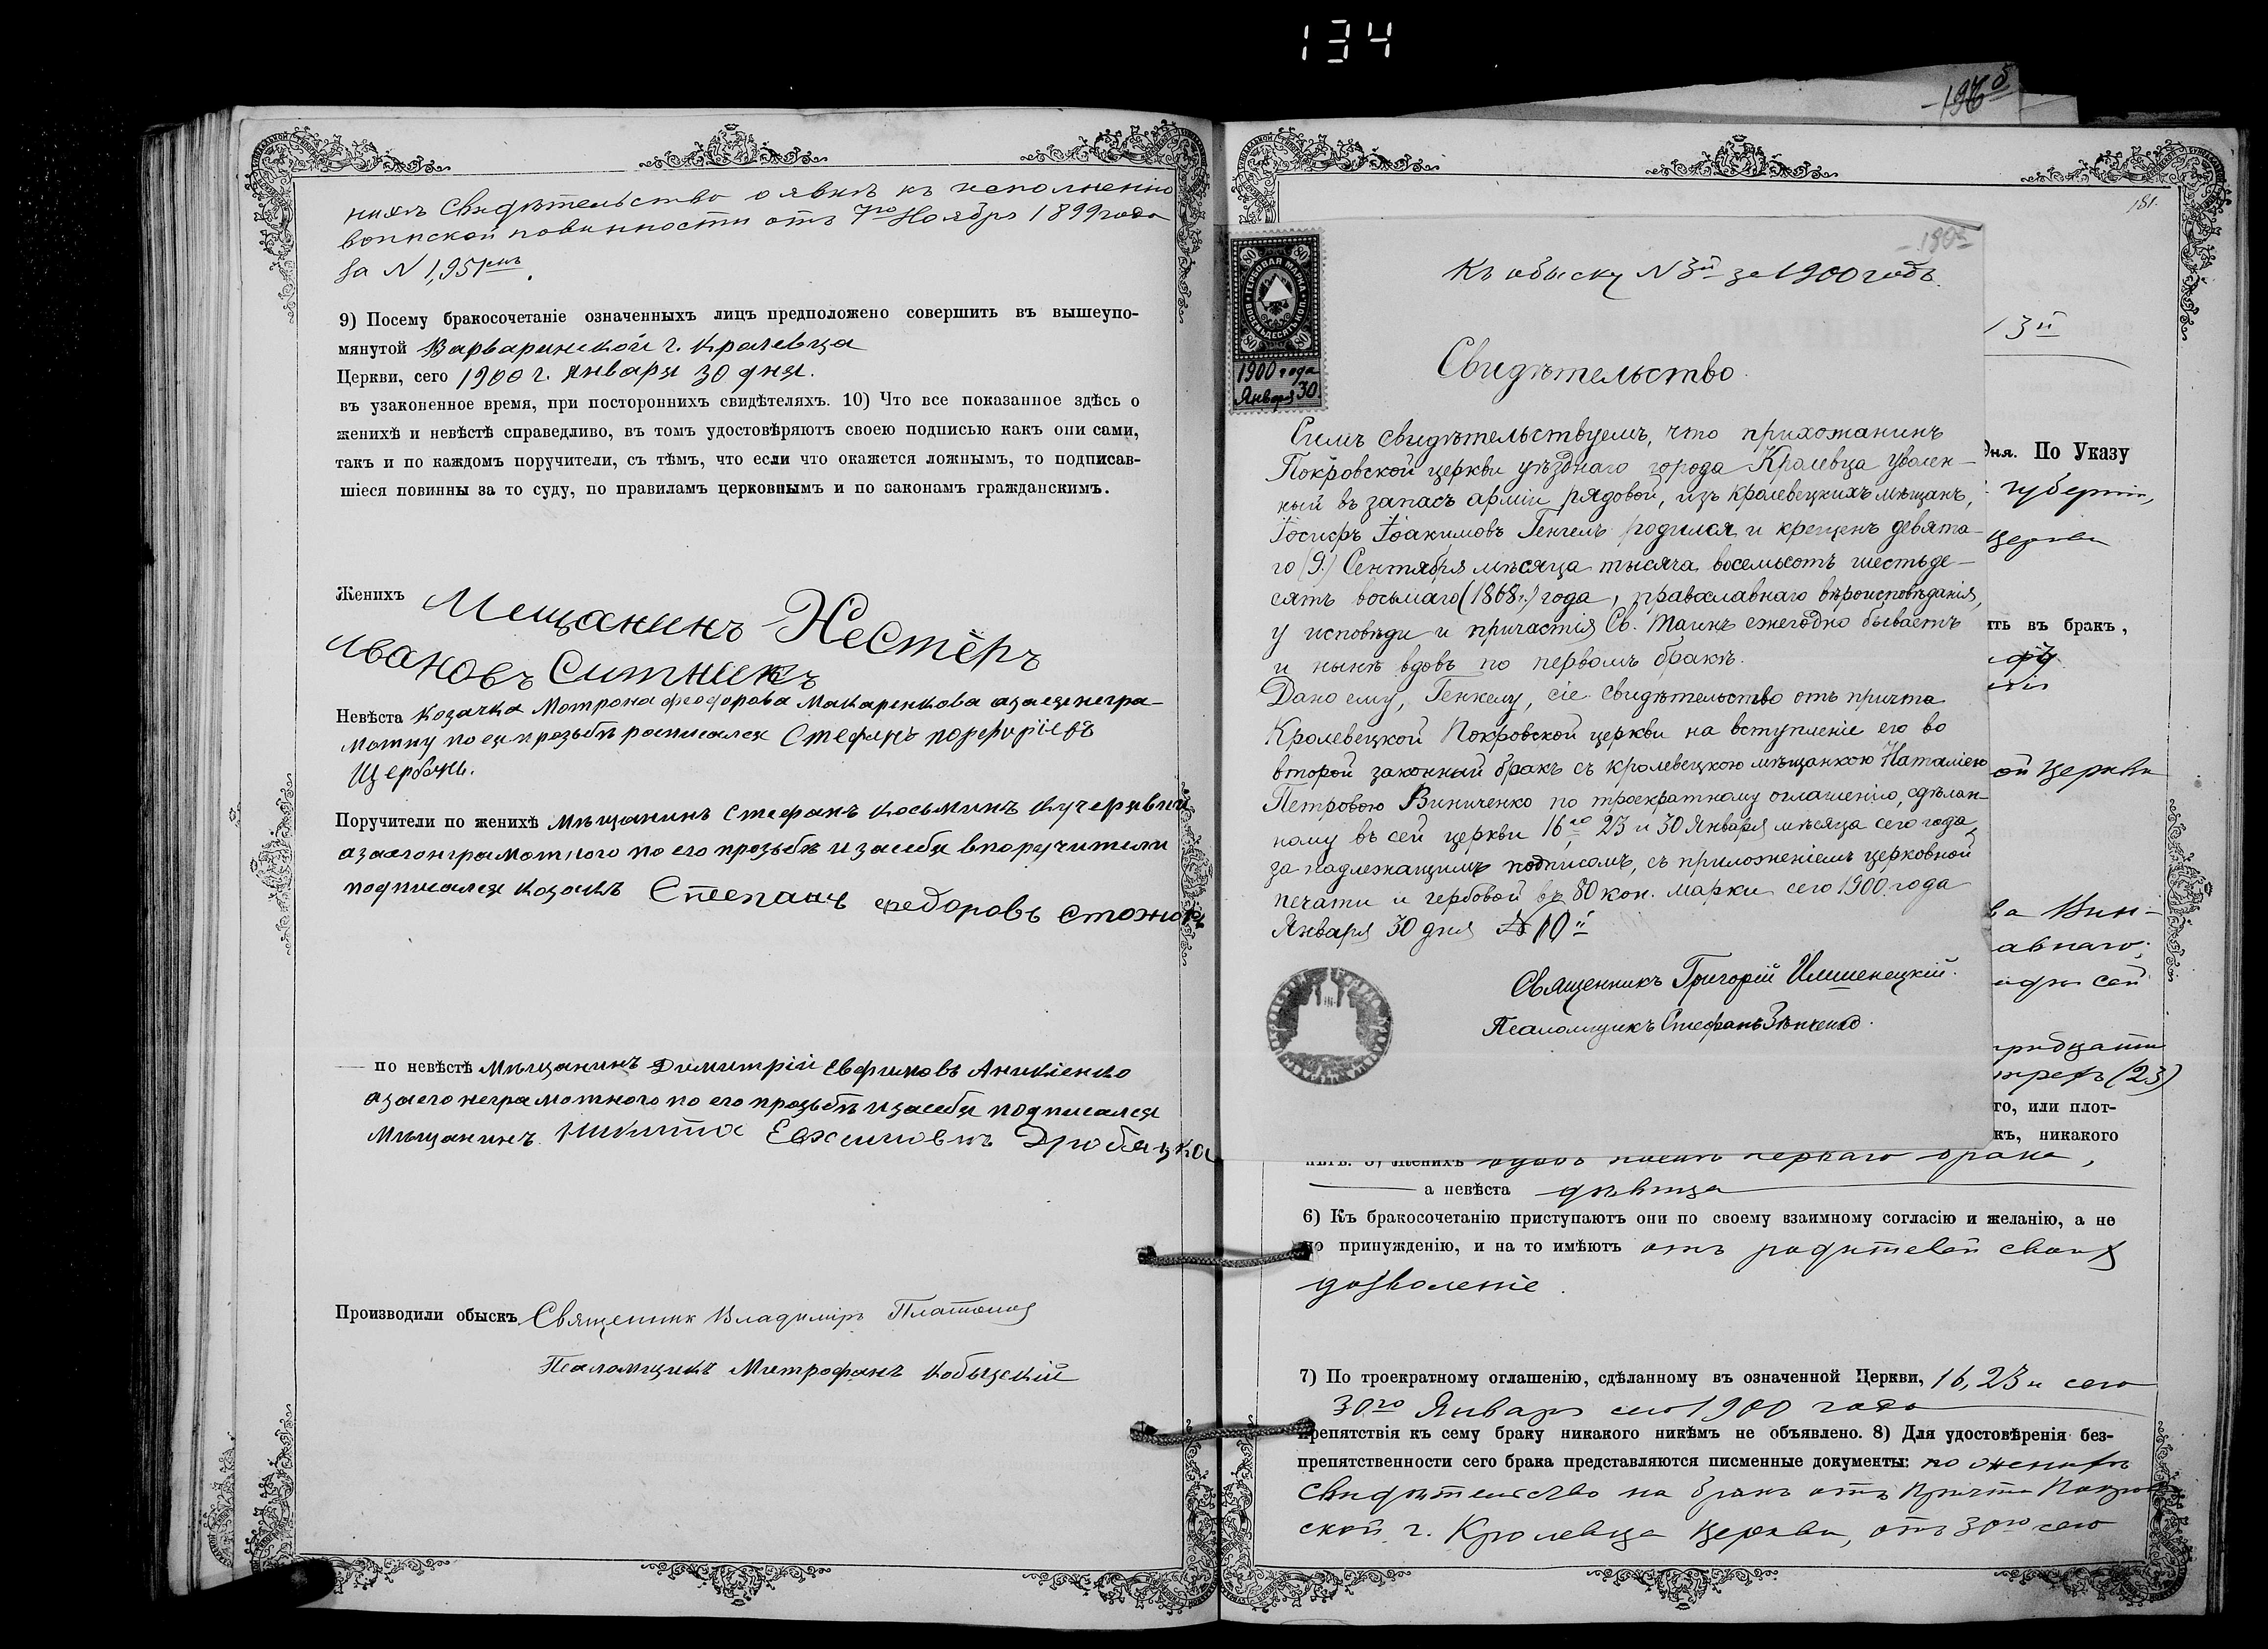 134
нихъ Свидѣтельство о явкѣ къ исполненію
воинской повинности отъ 7го Ноября 1899 года
за N 1,951емъ.
9) Посему бракосочетаніе означенныхъ лицъ предположено совершить въ вышеупо-
мянутой Варваринской г. Кролевца
Церкви, сего 1900 г. Января 30 дня.
въ узаконенное время, при постороннихъ свидѣтеляхъ. 10) Что все показанное здѣсь о
женихѣ и невѣстѣ справедливо, въ томъ удостовѣряютъ своею подписью какъ они сами,
такъ и по каждомъ поручители, съ тѣмъ, что если что окажется ложнымъ, то подписав-
шіеся повинны за то суду, по правиламъ церковнымъ и по законамъ гражданскимъ.
Женихъ Мещанинъ Нестеръ
Ивановъ Ситникъ
Невѣста Козачка Мотрона Феодорова Макаренкова а за ея негра-
мотну по ея прозьбѣ росписался Стефанъ порфиріевъ
Щербань.
Поручители по женихѣ Мѣщанинъ Стефанъ Косьминъ Кучерявий
а за его неграмотного по его прозьбѣ и за себя в поручители
подписался козакъ Степанъ федоровъ Стожок
по невѣстѣ Мѣщанинъ Димитрій Евфимовъ Аникіенко
а за его неграмотного по его прозьбѣ и за себя подписался
Мѣщанинъ Никита
Производили обыскъ Священник Владиміръ Платонов
Псаломщикъ Митрофанъ Кобыцскій
181.
Къ обыску N 3й за 1900 годъ.
ГЕРБОВАЯ МАРКА
ВОСЕМЬДЕСЯТЪ КОП.
80 80
80 80
1900 года
Января 30
Свидѣтельство.
Симъ свидѣтельствуемъ, что прихожанинъ
Покровской церкви уѣзднаго города Кролевца уволен-
ный въ запасъ арміи рядовой, изъ кролевецкихъ мѣщанъ,
Іосифъ Іоакимовъ Генкель родился и крещенъ девята-
го (9.) Сентября мѣсяца тысяча восемьсотъ шестьде-
сятъ восьмаго (1868 г.) года, православнаго вѣроисповѣданія,
у исповѣди и причастія Св. Таинъ ежегодно бываетъ
и нынѣ вдовъ по первомъ бракѣ.
Дано ему, Генкелу, сіе свидѣтельство отъ причта
Кролевецкой Покровской церкви на вступленіе его во
второй законный бракъ съ кролевецкою мѣщанкою Наталіею
Петровою Виниченко по троекратному оглашенію, сдѣлан-
ному въ сей церкви 16го, 23 и 30 Января мѣсяца сего года,
за надлежащимъ подписомъ, съ приложеніемъ церковной
печати и гербовой въ 80 коп. марки сего 1900 года
Января 30 дня № 10й
Священникъ Григорій Имшенецкій.
Псаломщикъ Стефанъ Зѣнченко.
3й
дня. По Указу
губерніи,
Церкви
ить въ бракъ,
ой Церкви
ва Вин-
авнаго,
сей
тридцати
трехъ (23)
то, или плот-
къ, никакого
нѣтъ. 5) Женихъ вдовъ послѣ перваго брака,
а невѣста дѣвица
6) Къ бракосочетанію приступаютъ они по своему взаимному согласію и желанію, а не
по принужденію, и на то имѣютъ отъ родителей своихъ
дозволеніе.
7) По троекратному оглашенію, сдѣланному въ означенной Церкви, 16, 23 и сего
30го Января сего 1900 года
препятствія къ сему браку никакого никѣмъ не объявлено. 8) Для удостовѣренія без-
препятственности сего брака представляются писменные документы: по женихѣ
Свидѣтельство на бракъ отъ Причта Покров
ской г. Кролевца Церкви, отъ 30го сего